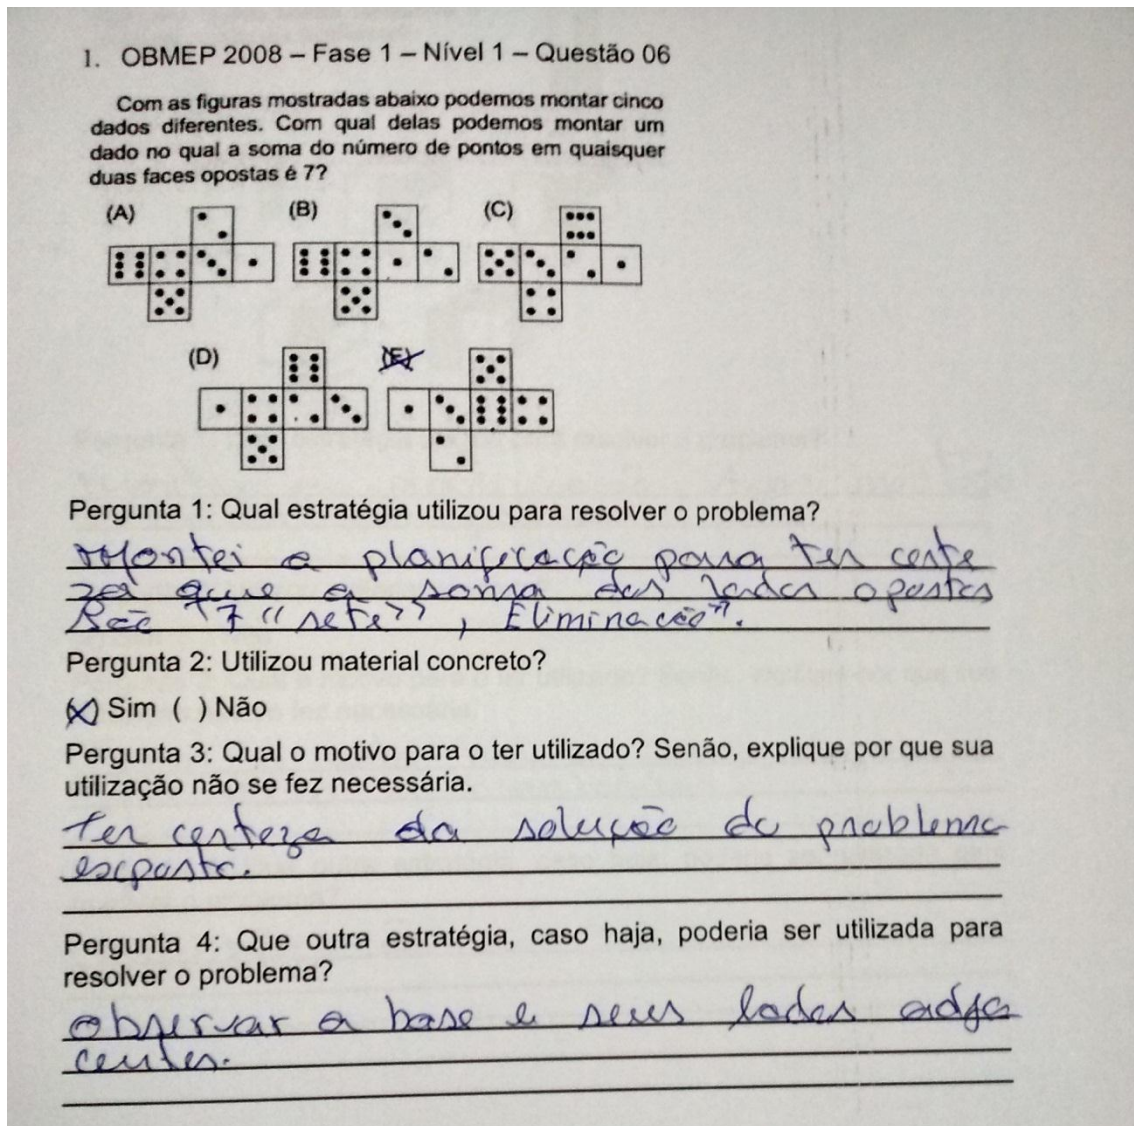 1. OBMEP 2008 – Fase 1 – Nível 1 – Questão 06
Com as figuras mostradas abaixo podemos montar cinco
dados diferentes. Com qual delas podemos montar um
dado no qual a soma do número de pontos em quaisquer
duas faces opostas é 7?
(A) (B) (C)
(D) (E)
Pergunta 1: Qual estratégia utilizou para resolver o problema?
Montei a planificação para ter certe
za que a soma dos lados opostos
São 7 "sete", Eliminação".
Pergunta 2: Utilizou material concreto?
(X) Sim ( ) Não
Pergunta 3: Qual o motivo para o ter utilizado? Senão, explique por que sua
utilização não se fez necessária.
ter certeza da solução do problema
exposto.
Pergunta 4: Que outra estratégia, caso haja, poderia ser utilizada para
resolver o problema?
observar a base e seus lados adja
centes.